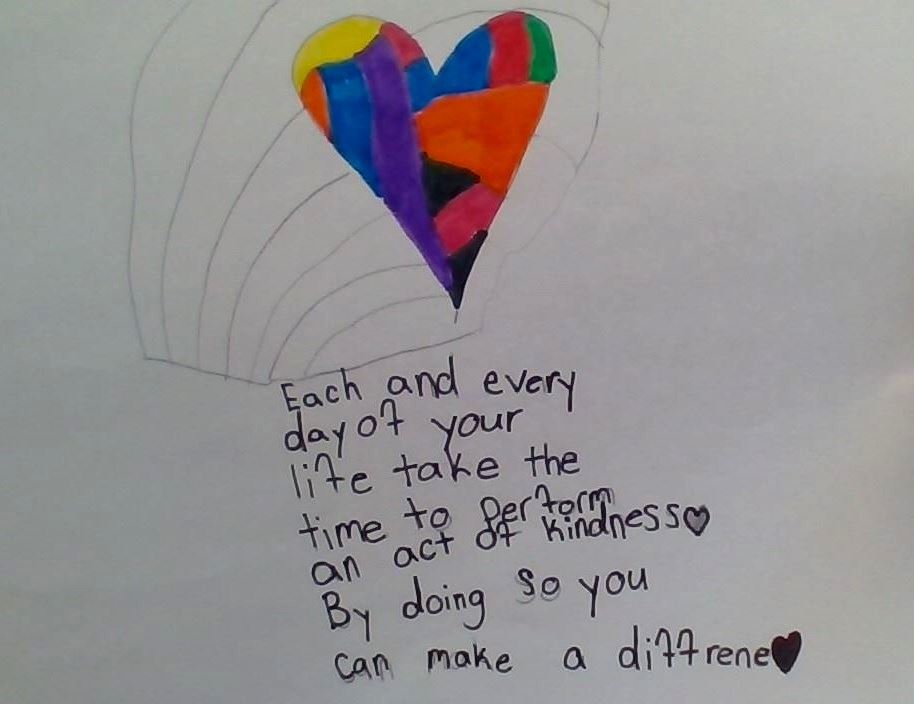 Each and every
day of your
life take the
time to perform
an act of kindness♡
By doing so you
can make a diffrene♥